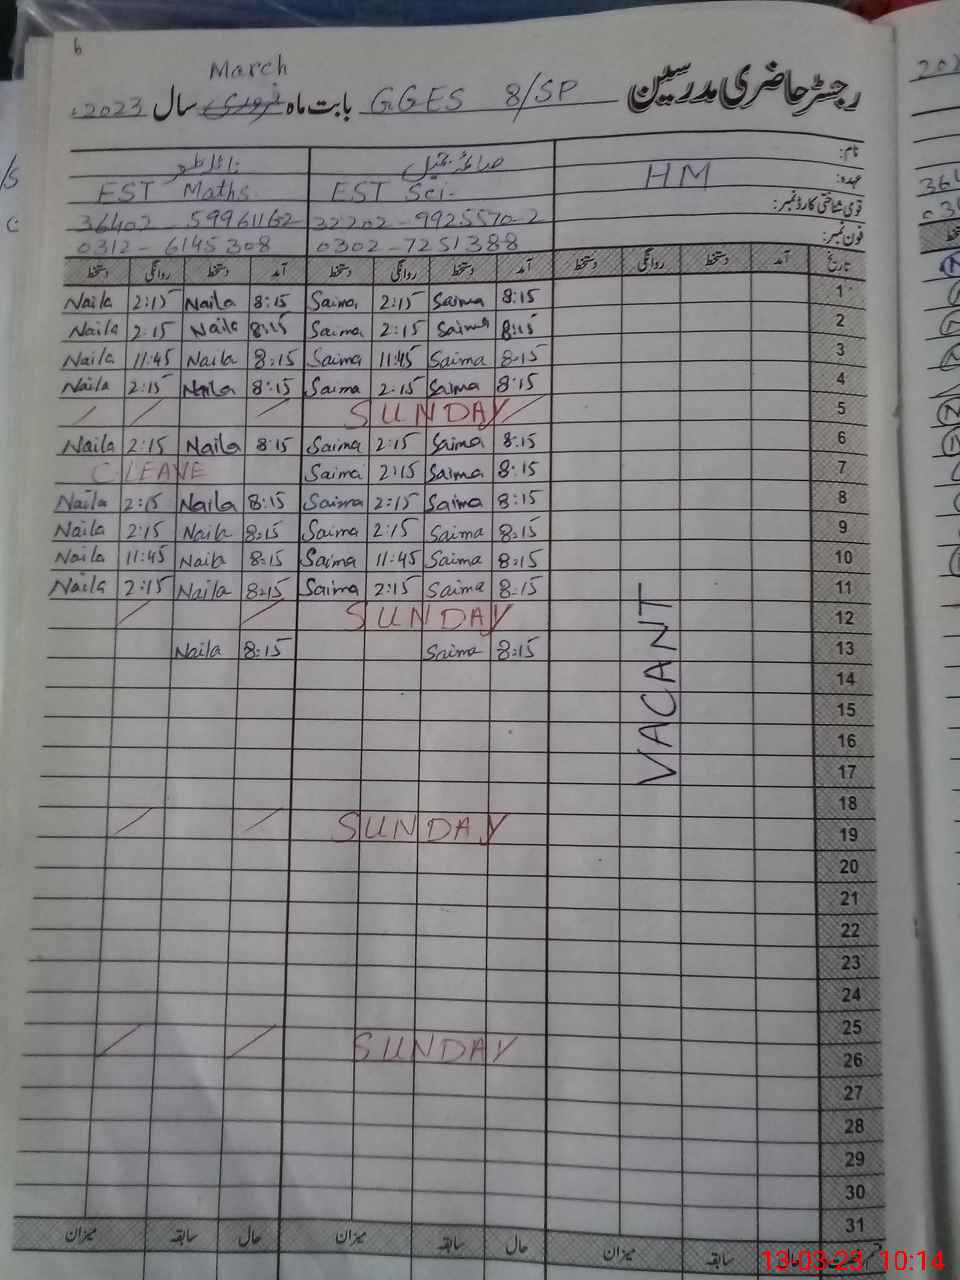 6
رجسٹر حاضری مدرسین GGES 8/SP بابت ماہ March سال 2023ء
نام:
عہدہ: HM EST Sci- EST Maths
قومی شناختی کارڈ نمبر: 32202-9925570-2 36402-59961162
فون نمبر: 0302-7251388 0312-6145308
تاریخ آمد دستخط روانگی دستخط آمد دستخط روانگی دستخط آمد دستخط روانگی دستخط
Naila 2:15 Naila 8:15 Saima 2:15 Saima 8:15 1
Naila 2:15 Naila 8:15 Saima 2:15 Saima 8:15 2
Naila 11:45 Naila 8:15 Saima 11:45 Saima 8:15 3
Naila 2:15 Naila 8:15 Saima 2:15 Saima 8:15 4
SUNDAY 5
Naila 2:15 Naila 8:15 Saima 2:15 Saima 8:15 6
C LEAVE Saima 2:15 Saima 8:15 7
Naila 2:15 Naila 8:15 Saima 2:15 Saima 8:15 8
Naila 2:15 Naila 8:15 Saima 2:15 Saima 8:15 9
Naila 11:45 Naila 8:15 Saima 11:45 Saima 8:15 10
Naila 2:15 Naila 8:15 Saima 2:15 Saima 8:15 11
SUNDAY 12
Naila 8:15 Saima 8:15 13
VACANT
14
15
16
17
18
SUNDAY 19
20
21
22
23
24
25
SUNDAY 26
27
28
29
30
31
حال سابقہ میزان حال سابقہ میزان حال سابقہ میزان
13-03-23 10:14